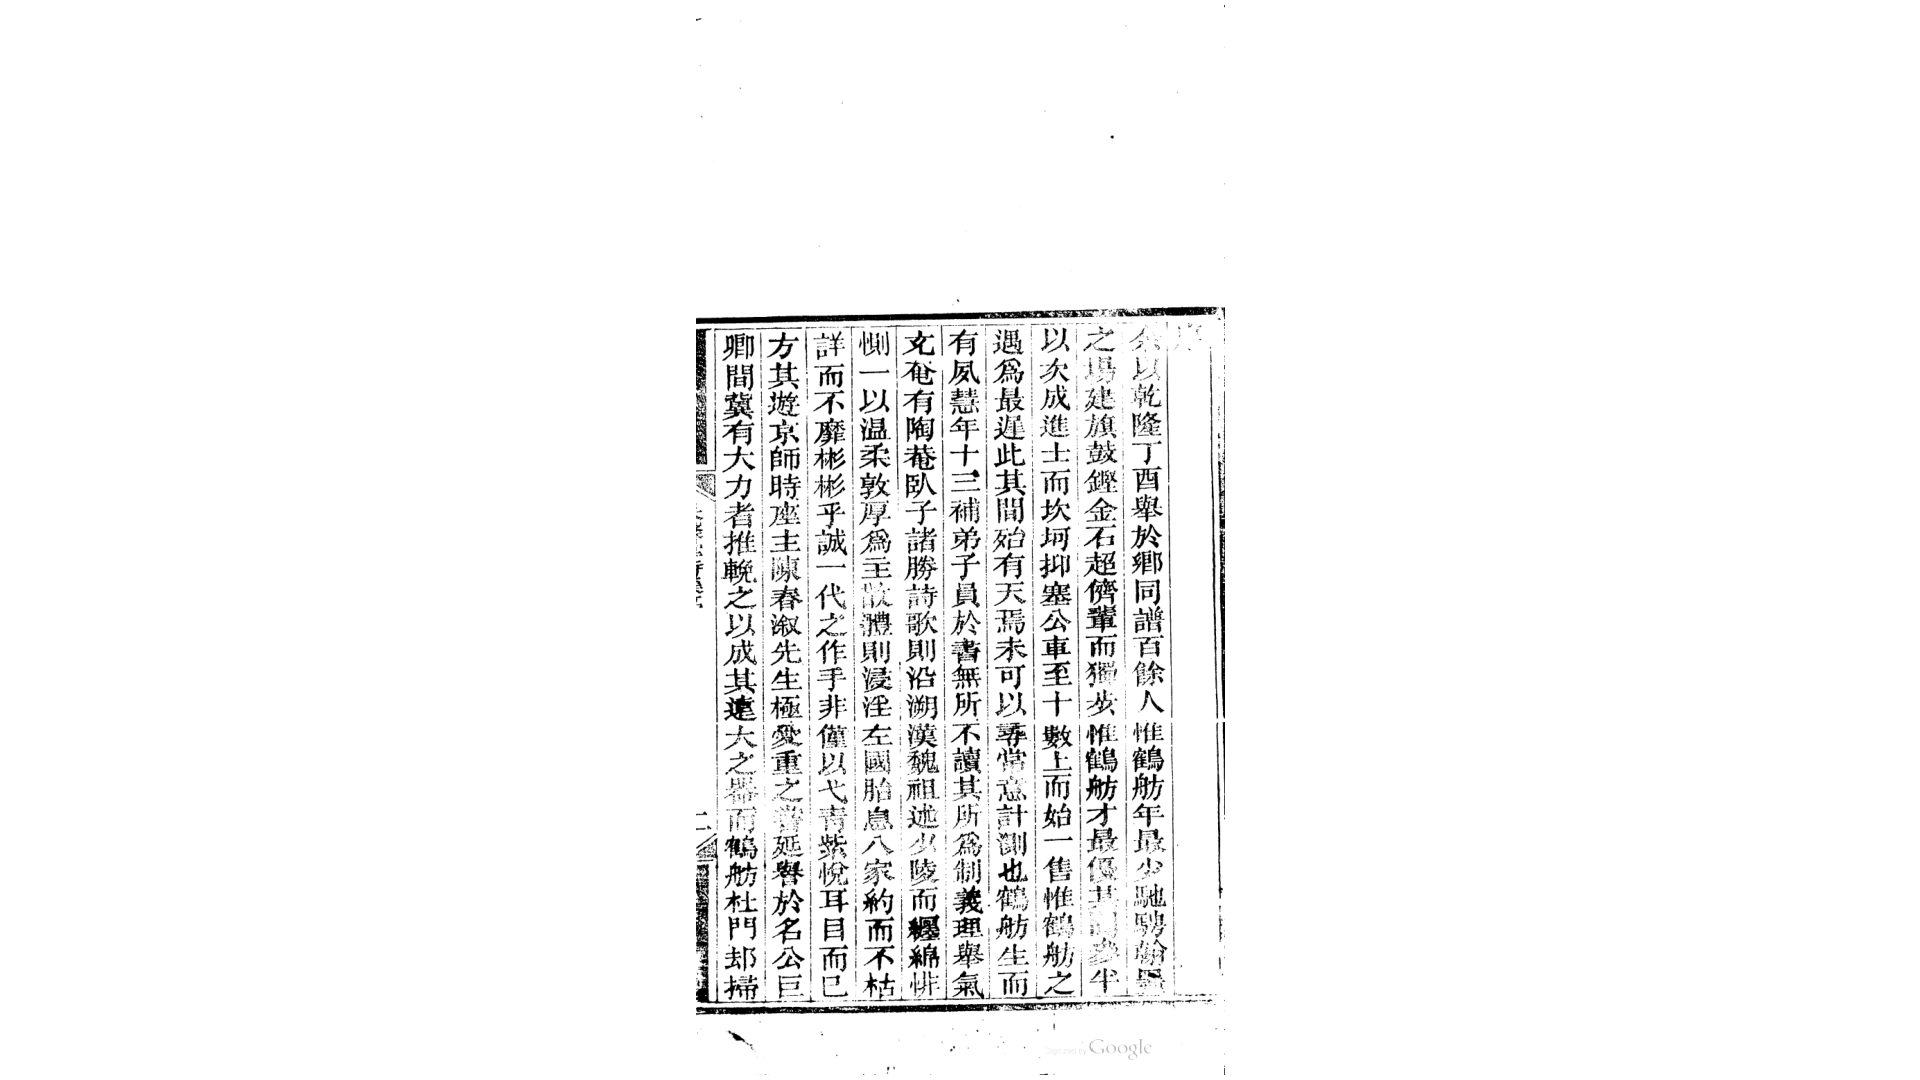 序
余以乾隆丁酉舉於鄉同譜百餘人惟鶴舫年最少馳騁翰墨
之場建旗鼓鏗金石超儕輩而獨步惟鶴舫才最優其同參半
以次成進士而坎坷抑塞公車至十數上而始一售惟鶴舫之
遇爲最遲此其間殆有天焉未可以尋常意計測也鶴舫生而
有夙慧年十三補弟子員於書無所不讀其所爲制義理舉氣
文奄有陶菴臥子諸勝詩歌則沿溯漢魏祖述少陵而纒綿悱
惻一以温柔敦厚爲主散體則浸淫左國胎息八家約而不枯
詳而不靡彬彬乎誠一代之作手非僅以弋靑紫悅耳目而已
方其遊京師時座主陳春溆先生極愛重之嘗延譽於名公巨
卿間冀有大力者推輓之以成其遠大之器而鶴舫杜門却掃
二
Digitized by Google